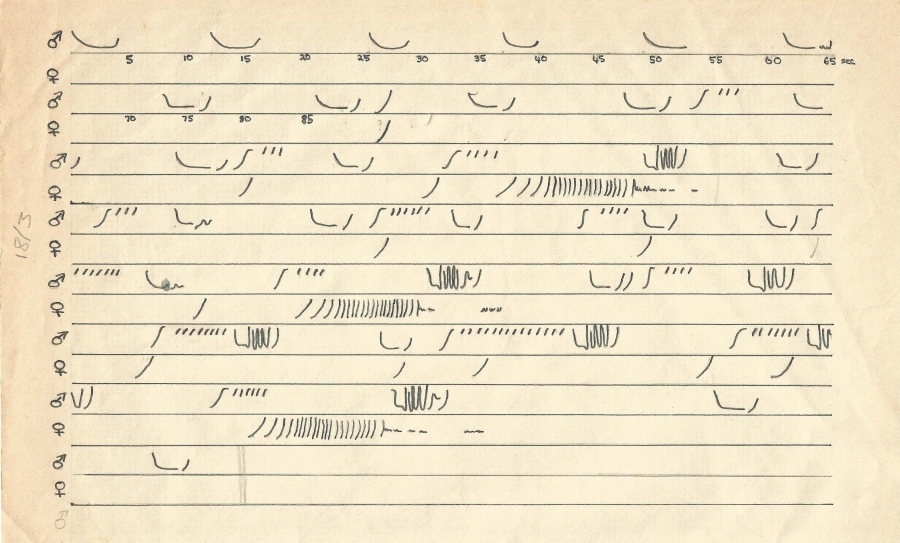 ♂
5 10 15 20 25 30 35 40 45 50 55 60 65 sec.
♀
♂
70 75 80 85
♀
♂
♀
18/3
♂
♀
♂
♀
♂
♀
♂
♀
♂
♀
♂